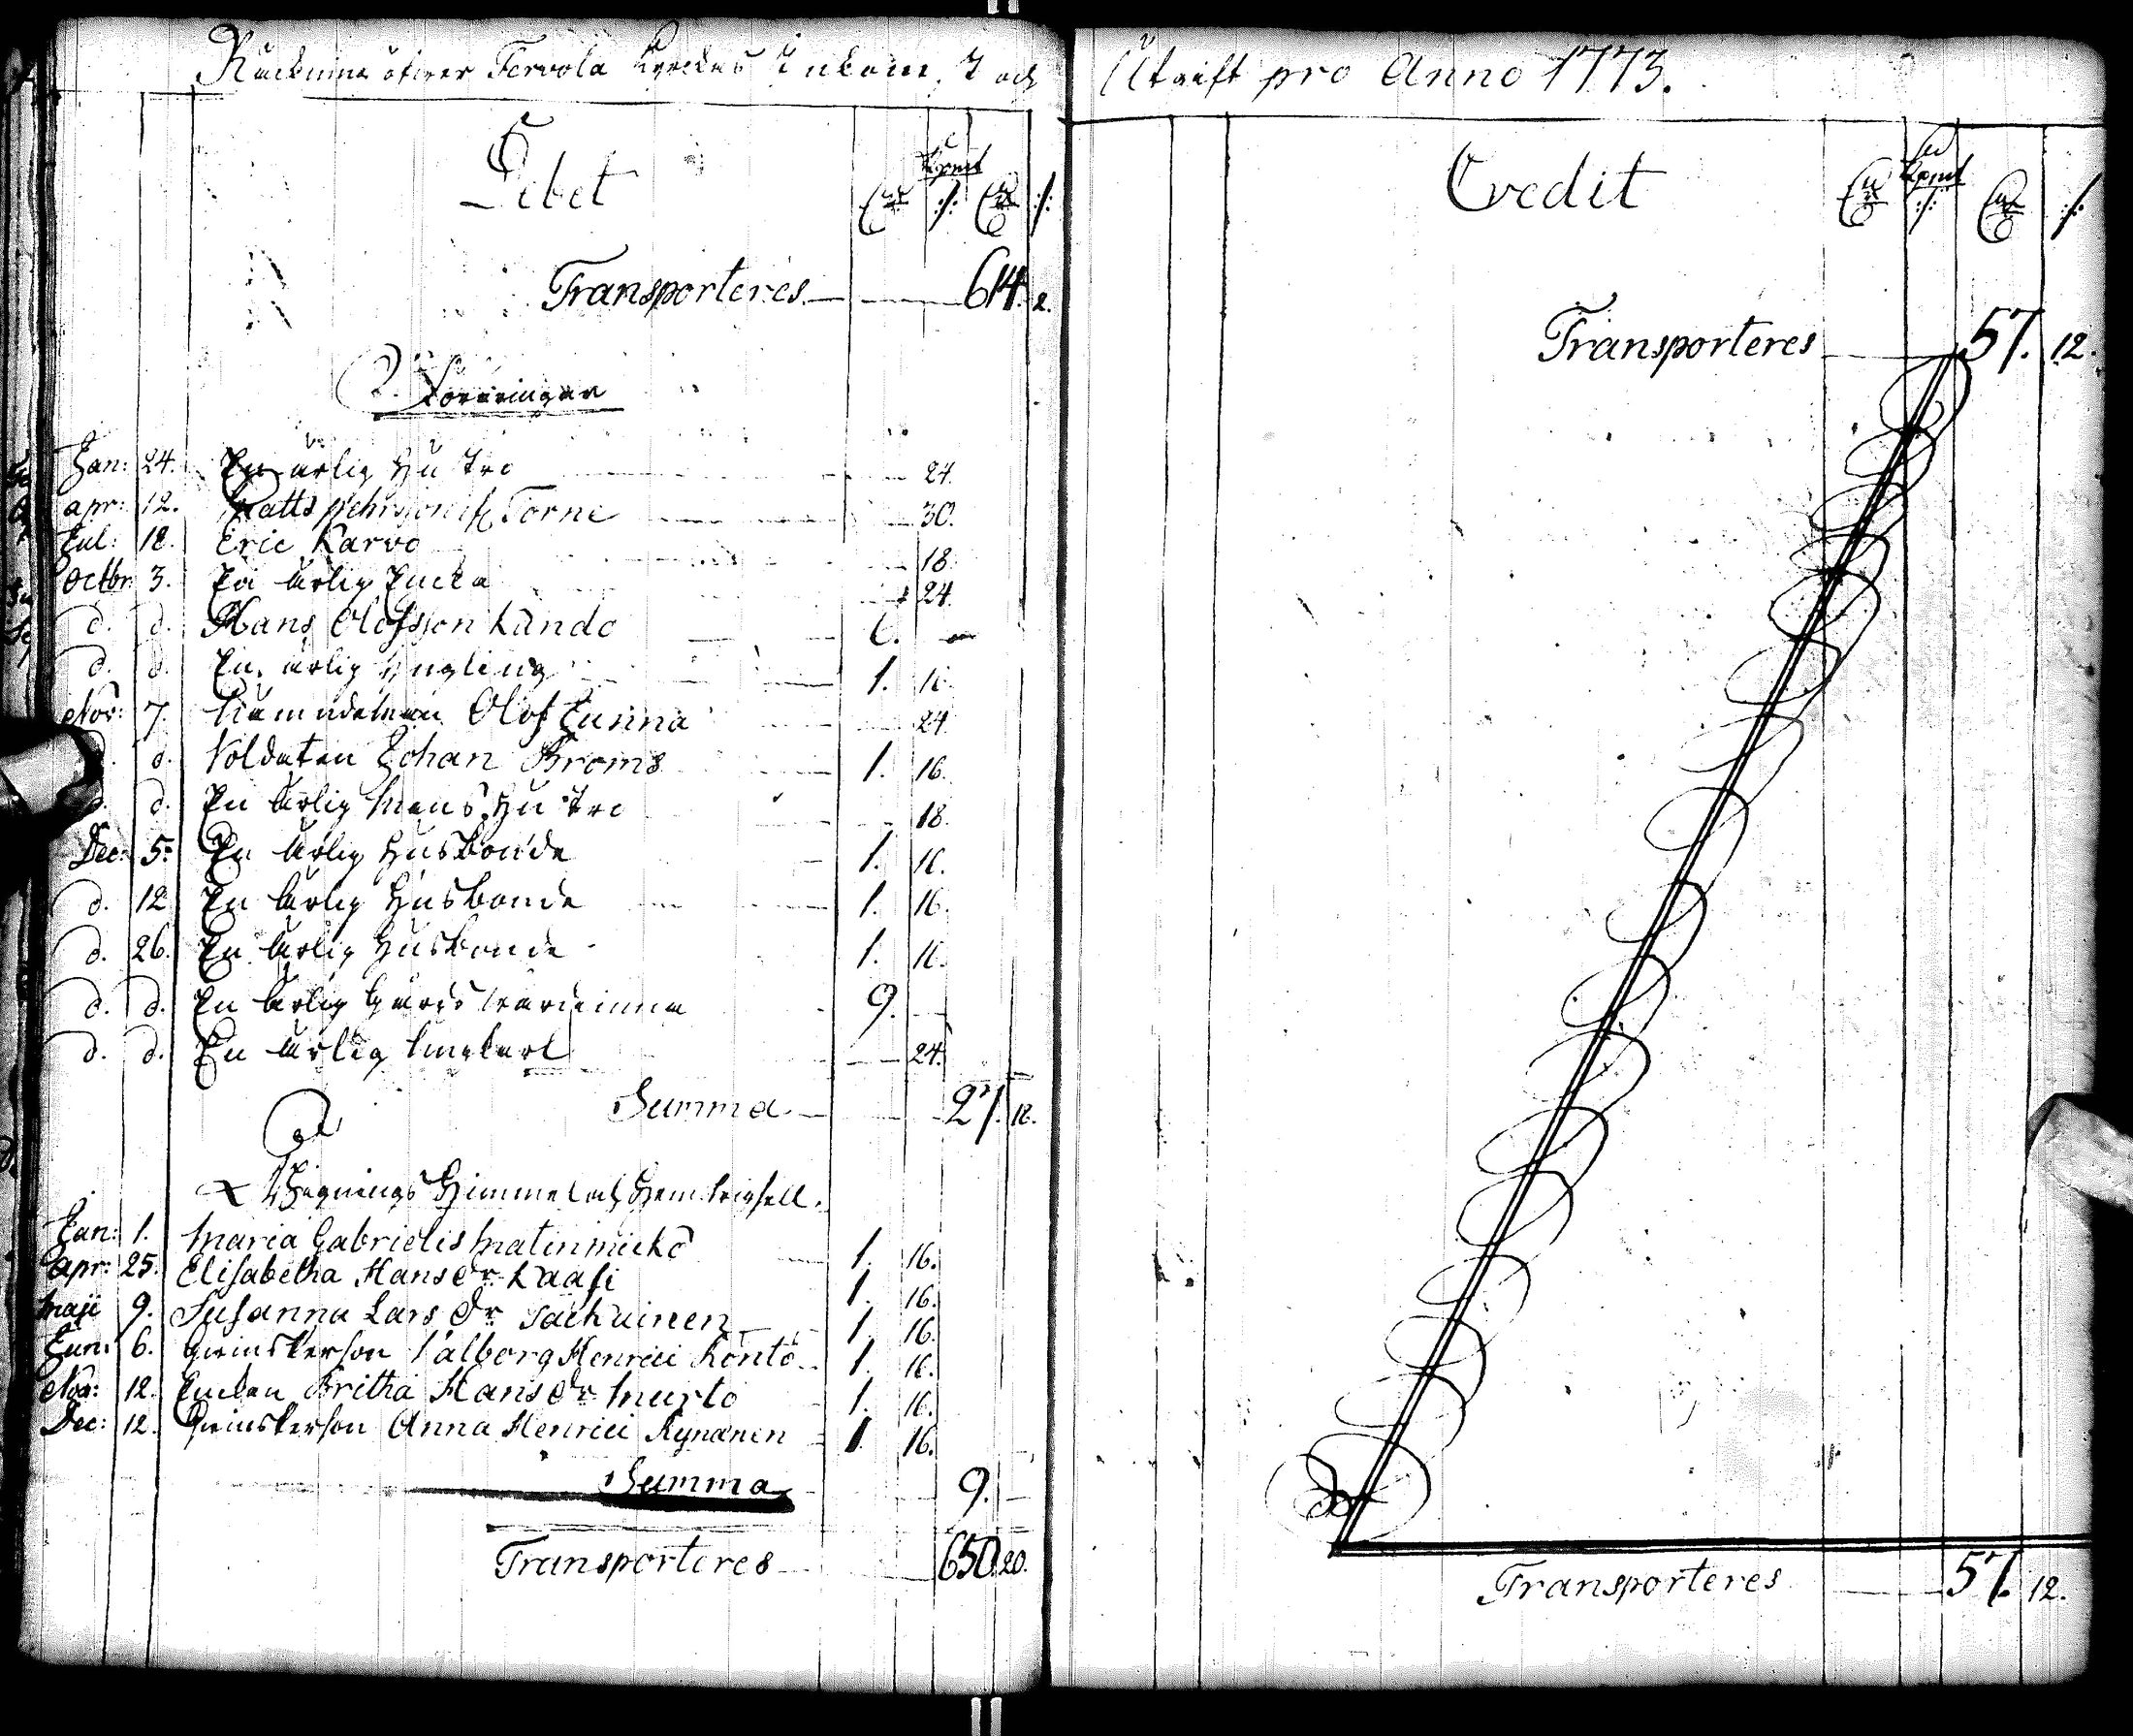 Räckning öfwer Tervola Kyrckas Inkomst och
Debet
Transporteres 614. 2.
Föräringar
Jan: 24. En ärlig Hustro 24.
apr: 12. Matts Pehrsson Torne 30.
Jul: 18. Eric Karvo 18.
Octbr: 3. En ärlig Encka 24.
d. d. Hans Olofsson Lando 6. —
d. d. En ärlig Yngling 1. 16.
Nov: 7. Nämndeman Olof Junna 24.
d. d. Soldaten Johan Broms 1. 16.
d. d. En ärlig Mans Hustro 18.
Dec: 5. En ärlig Husbonde 1. 16.
d. 12. En ärlig Husbonde 1. 16.
d. 26. En ärlig Husbonde 1. 16.
d. d. En ärlig Gårds wärdinna 9. —
d. d. En ärlig Ungkarl 24.
Summa 27. 18.
Wignings Himmel och
Jan: 1. Maria Gabrielis Matinmicko 1. 16.
apr: 25. Elisabetha Hans dr Kaasi 1. 16.
Maji 9. Susanna Lars dr 1. 16.
Jun: 6. Qwinsperson Valborg Henrici Konto 1. 16.
Nov: 12. Enckan Britha Hans dr Murto 1. 16.
Dec: 12. Qwinsperson Anna Henrici Kynänen 1. 16.
Summa 9. —
Transporteres 650. 20.
Utgift pro Anno 1773.
Credit
Transporteres 57. 12.
Transporteres 57. 12.